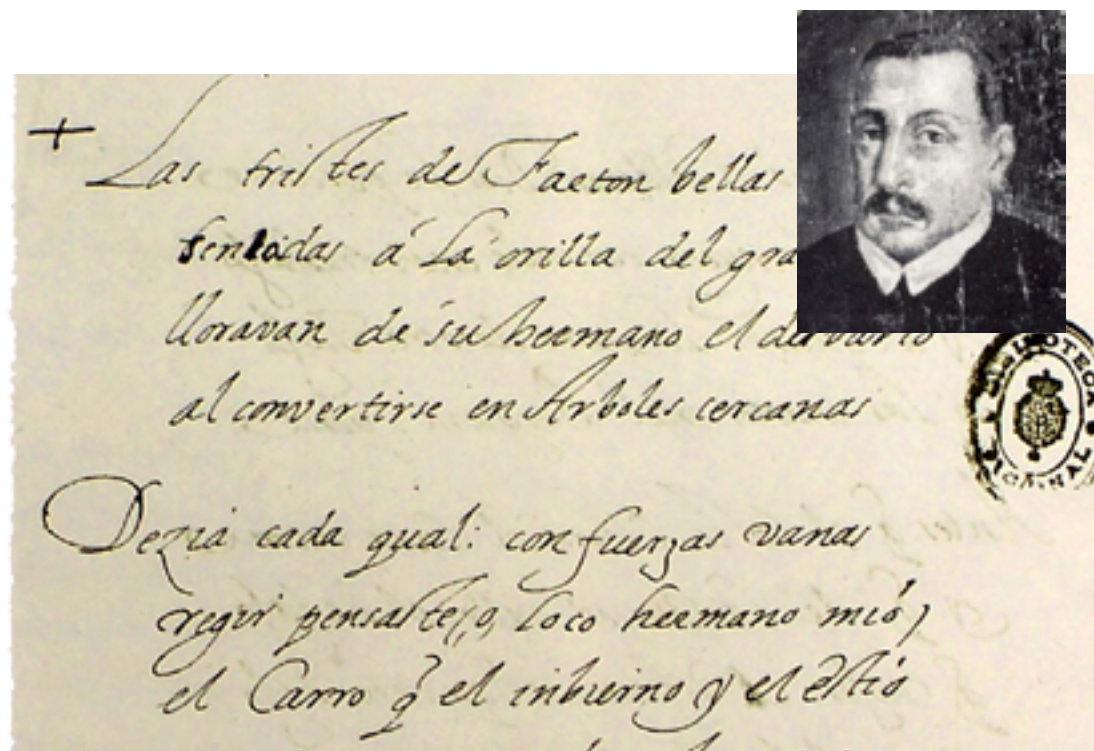 Las tristes de Faeton bellas
sentadas á La orilla del gra
lloravan de su hermano el desvario
al convertirse en Arboles cercanas
Dezia cada qual: con fuerzas vanas
regir pensaste, (o, loco hermano mio)
el Carro q̃ el inbierno y el estio
BIBLIOTECA NACIONAL